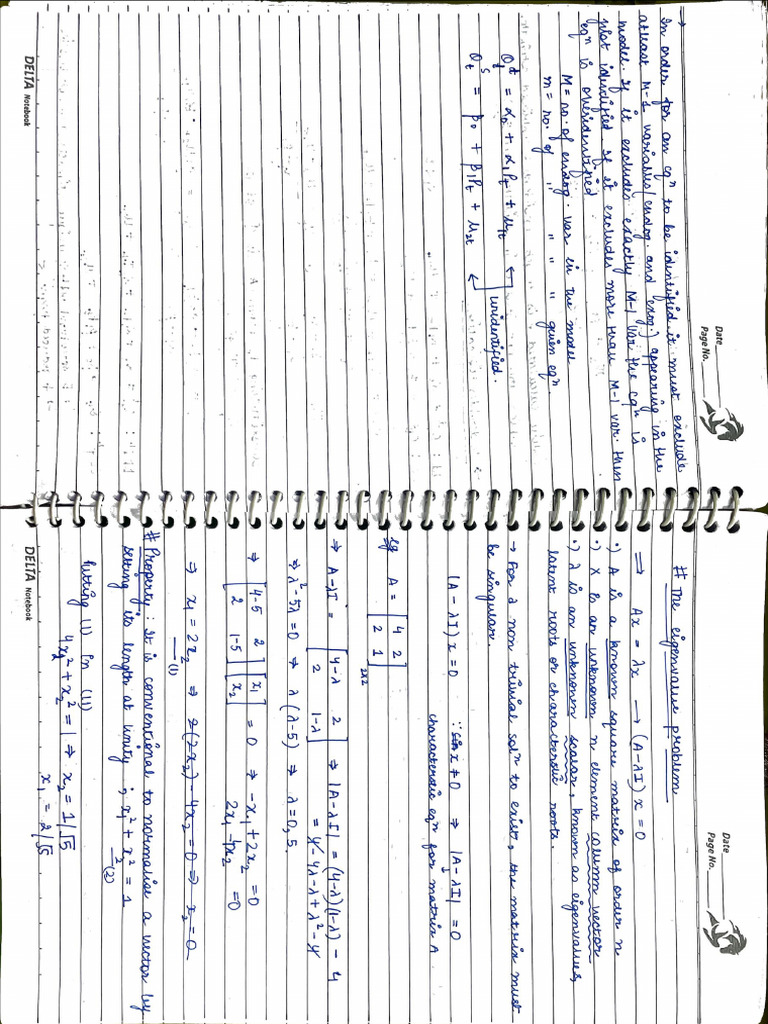 Date
Page No.
→
In order for an eqn to be identified it must exclude
atleast M-1 variables (endog. and exog.) appearing in the
model. If it excludes exactly M-1 var. the eqn is
just identified if it excludes more than M-1 var. then
eqn is overidentified.
M = no. of endog. var in the model
m = no. of " " " " given eqn.
Qtd = α0 + α1Pt + μ1t
unidentified.
Qts = β0 + β1Pt + μ2t
DELTA Notebook
Date
Page No.
# The eigenvalue problem
⇒ Ax = λx → (A-λI)x = 0
•) A is a known square matrix of order n
•) X is an unknown n element column vector
•) λ is an unknown scalar, known as eigenvalues,
latent roots or characteristic roots.
→ For a non trivial soln to exist, the matrix must
be singular.
(A-λI)x = 0 ∵ x ≠ 0 ⇒ |A-λI| = 0
characteristic eqn for matrix A.
eg A = [4 2
2 1] 2x2
⇒ A-λI = [4-λ 2
2 1-λ] ⇒ |A-λI| = (4-λ)(1-λ) - 4
= 4-4λ-λ+λ²-4
⇒ λ²-5λ=0 ⇒ λ(λ-5) ⇒ λ=0,5.
⇒ [4-5 2
2 1-5] [x1
x2] = 0 ⇒ -x1+2x2 = 0
2x1-4x2 = 0
⇒ x1 = 2x2 ⇒ 2(2x2)-4x2 = 0 ⇒ x2 = 0
(1)
# Property: It is conventional to normalise a vector by
setting its length at unity; x1²+x2² = 1
(2)
Putting (1) in (11)
4x2²+x2² = 1 ⇒ x2 = 1/√5
x1 = 2/√5
DELTA Notebook